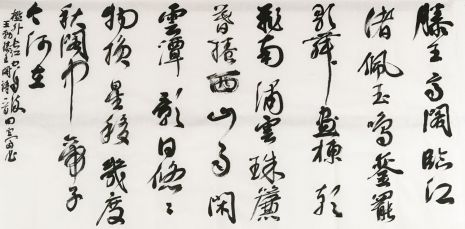 滕王高閣臨江
渚佩玉鳴鑾罷
歌舞畫棟朝
飛南浦雲珠簾
暮捲西山雨閑
雲潭影日悠〻
物換星移幾度
秋閣中帝子
今何在
檻外長江空自流
王勃滕王閣詩一首田